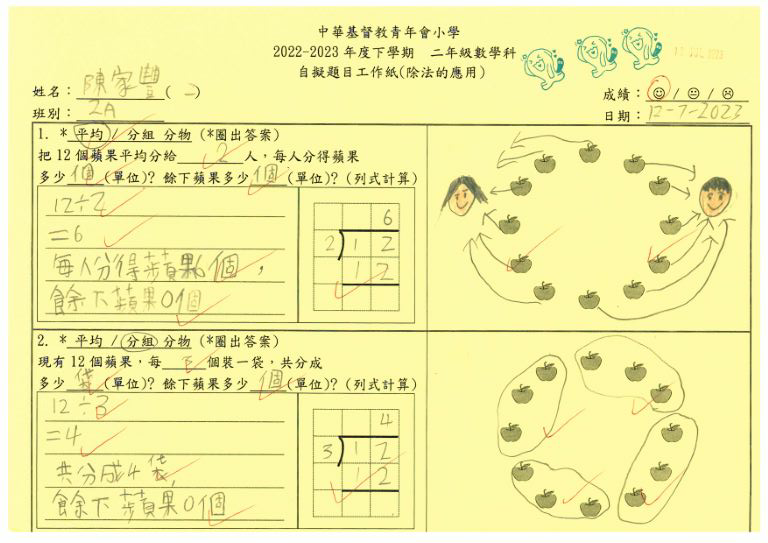 中華基督教青年會小學
2022-2023 年度下學期 二年級數學科
自擬題目工作紙(除法的應用)
姓名：陳家豐( )
班別：2A
成績：☺ / 😐 / ☹
日期：12-7-2023
1. * 平均 / 分組 分物 (*圈出答案)
把 12 個蘋果平均分給 2 人，每人分得蘋果
多少 個 (單位)? 餘下蘋果多少 個 (單位)? (列式計算)
12÷2
=6
每人分得蘋果6個，
餘下蘋果0個
6
2)12
12
2. * 平均 / 分組 分物 (*圈出答案)
現有 12 個蘋果，每 3 個裝一袋，共分成
多少 袋 (單位)? 餘下蘋果多少 個 (單位)? (列式計算)
12÷3
=4
共分成4袋，
餘下蘋果0個
4
3)12
12